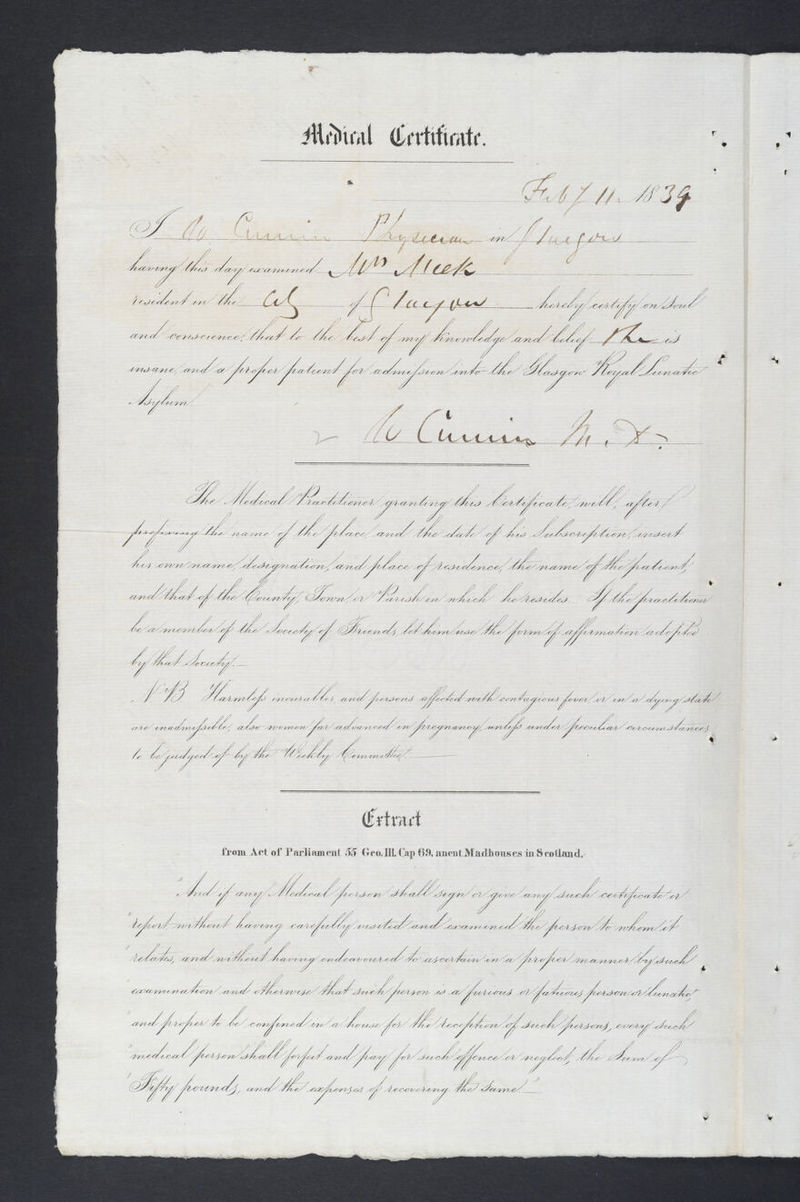 Medical Certificate.
Feby 11. 1839
I W Cumin Physician in Glasgow
having this day examined Mrs Meek
resident in the City of Glasgow hereby certify on Soul
and conscience, that to the best of my knowledge and belief She is
insane, and a proper patient for admission into the Glasgow Royal Lunatic
Asylum.
W Cumin M. D.
The Medical Practitioner granting this Certificate, will, after
prefixing the name of the place, and the date of his Subscription, insert
his own name, designation, and place of residence, the name of the patient,
and that of the County, Town, or Parish in which he resides. If the practitioner
be a member of the Society of Friends, let him use the form of affirmation adopted
by that Society.—
N.B. Harmless incurables and persons affected with contagious fever or in a dying state
are inadmissible, also women far advanced in pregnancy, unless under peculiar circumstances
to be judged of by the Weekly Committee.
Extract
from Act of Parliament 55 Geo. III. Cap 69. anent Madhouses in Scotland.
"And if any Medical person shall sign or give any such certificate or
"report without having carefully visited and examined the person to whom it
"relates, and without having endeavoured to ascertain in a proper manner by such
"examination and otherwise that such person is a furious or fatuous person or lunatic,
"and proper to be confined in a house for the reception of such persons, every such
"medical person shall forfeit and pay for such offence or neglect, the Sum of
"Fifty pounds, and the expenses of recovering the Same."